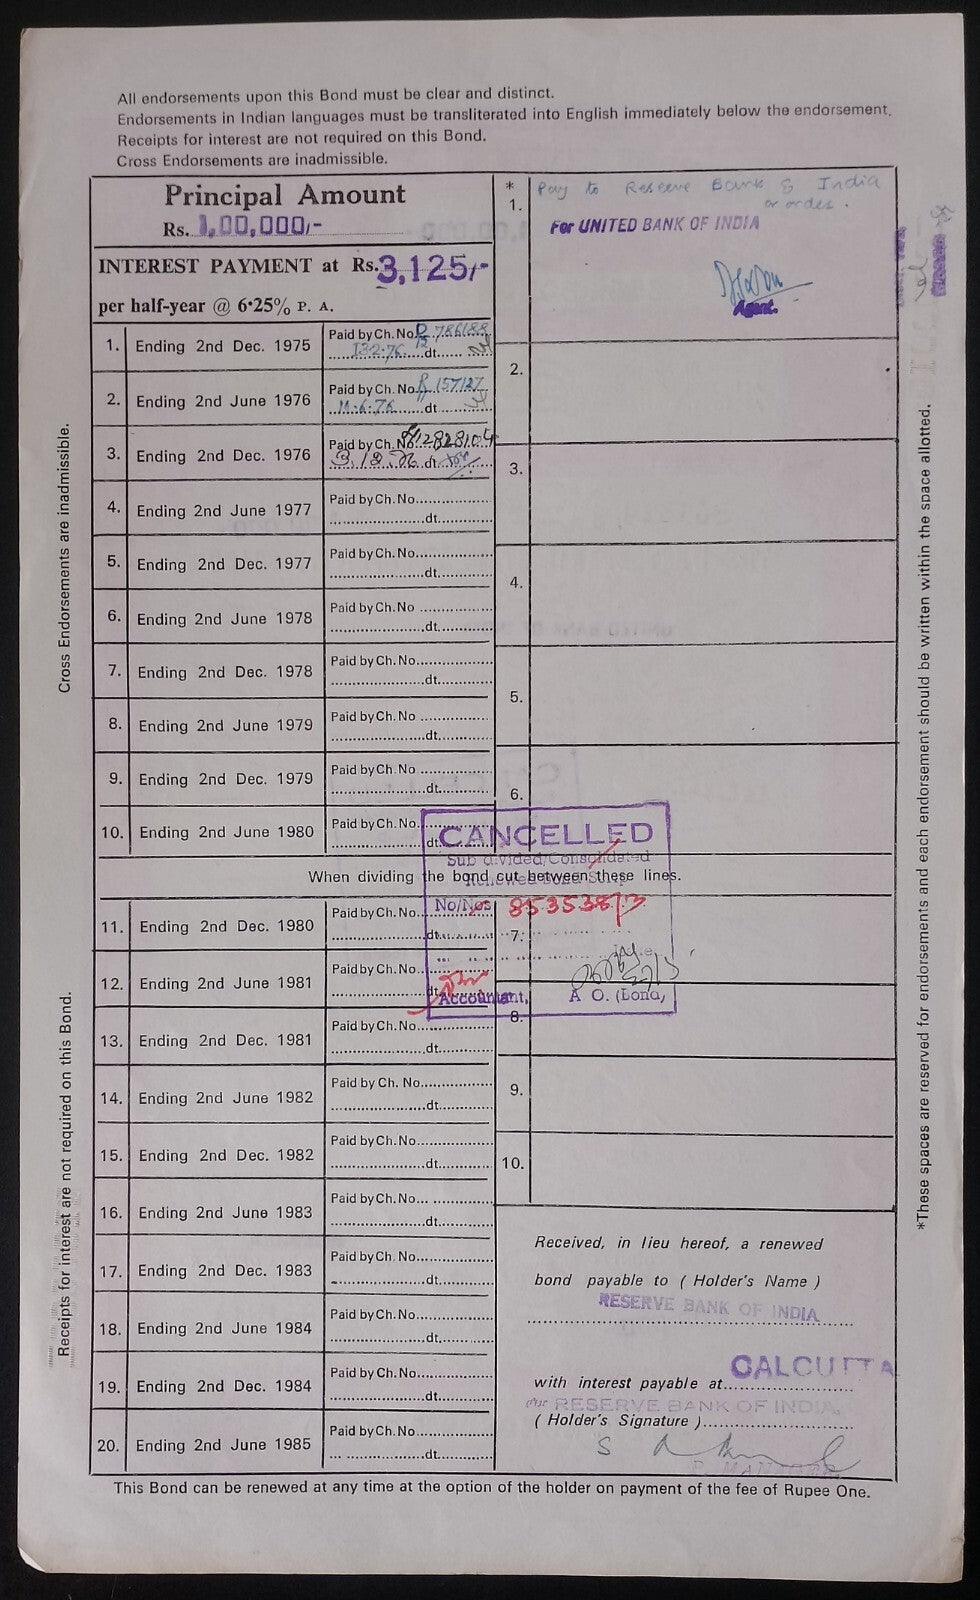 All endorsements upon this Bond must be clear and distinct.
Endorsements in Indian languages must be transliterated into English immediately below the endorsement.
Receipts for interest are not required on this Bond.
Cross Endorsements are inadmissible.
Principal Amount
Rs. 1,00,000/-
INTEREST PAYMENT at Rs. 3,125/-
per half-year @ 6·25% P. A.
1. Ending 2nd Dec. 1975 Paid by Ch. No. 786188
13·2·76 dt.
2. Ending 2nd June 1976 Paid by Ch. No. 157127
11·6·76 dt.
3. Ending 2nd Dec. 1976 Paid by Ch. No.
3.12.76 dt.
4. Ending 2nd June 1977 Paid by Ch. No.
dt.
5. Ending 2nd Dec. 1977 Paid by Ch. No.
dt.
6. Ending 2nd June 1978 Paid by Ch. No
dt.
7. Ending 2nd Dec. 1978 Paid by Ch. No
dt.
8. Ending 2nd June 1979 Paid by Ch. No
dt.
9. Ending 2nd Dec. 1979 Paid by Ch. No
dt.
10. Ending 2nd June 1980 Paid by Ch. No.
dt.
When dividing the bond cut between these lines.
11. Ending 2nd Dec. 1980 Paid by Ch. No.
dt.
12. Ending 2nd June 1981 Paid by Ch. No.
dt.
13. Ending 2nd Dec. 1981 Paid by Ch. No.
dt.
14. Ending 2nd June 1982 Paid by Ch. No.
dt.
15. Ending 2nd Dec. 1982 Paid by Ch. No.
dt.
16. Ending 2nd June 1983 Paid by Ch. No.
dt.
17. Ending 2nd Dec. 1983 Paid by Ch. No.
dt.
18. Ending 2nd June 1984 Paid by Ch. No.
dt.
19. Ending 2nd Dec. 1984 Paid by Ch. No.
dt.
20. Ending 2nd June 1985 Paid by Ch. No.
dt.
*
1. Pay to Reserve Bank of India
or order.
For UNITED BANK OF INDIA
Agent.
2.
3.
4.
5.
6.
CANCELLED
Sub divided/Consolidated
Renewed Bond Scrip
No/Nos 853538/3
7.
Accountant, A O. (Bond)
8.
9.
10.
Received, in lieu hereof, a renewed
bond payable to ( Holder's Name )
RESERVE BANK OF INDIA
CALCUTTA
with interest payable at
for RESERVE BANK OF INDIA
( Holder's Signature )
This Bond can be renewed at any time at the option of the holder on payment of the fee of Rupee One.
Cross Endorsements are inadmissible.
Receipts for interest are not required on this Bond.
*These spaces are reserved for endorsements and each endorsement should be written within the space allotted.